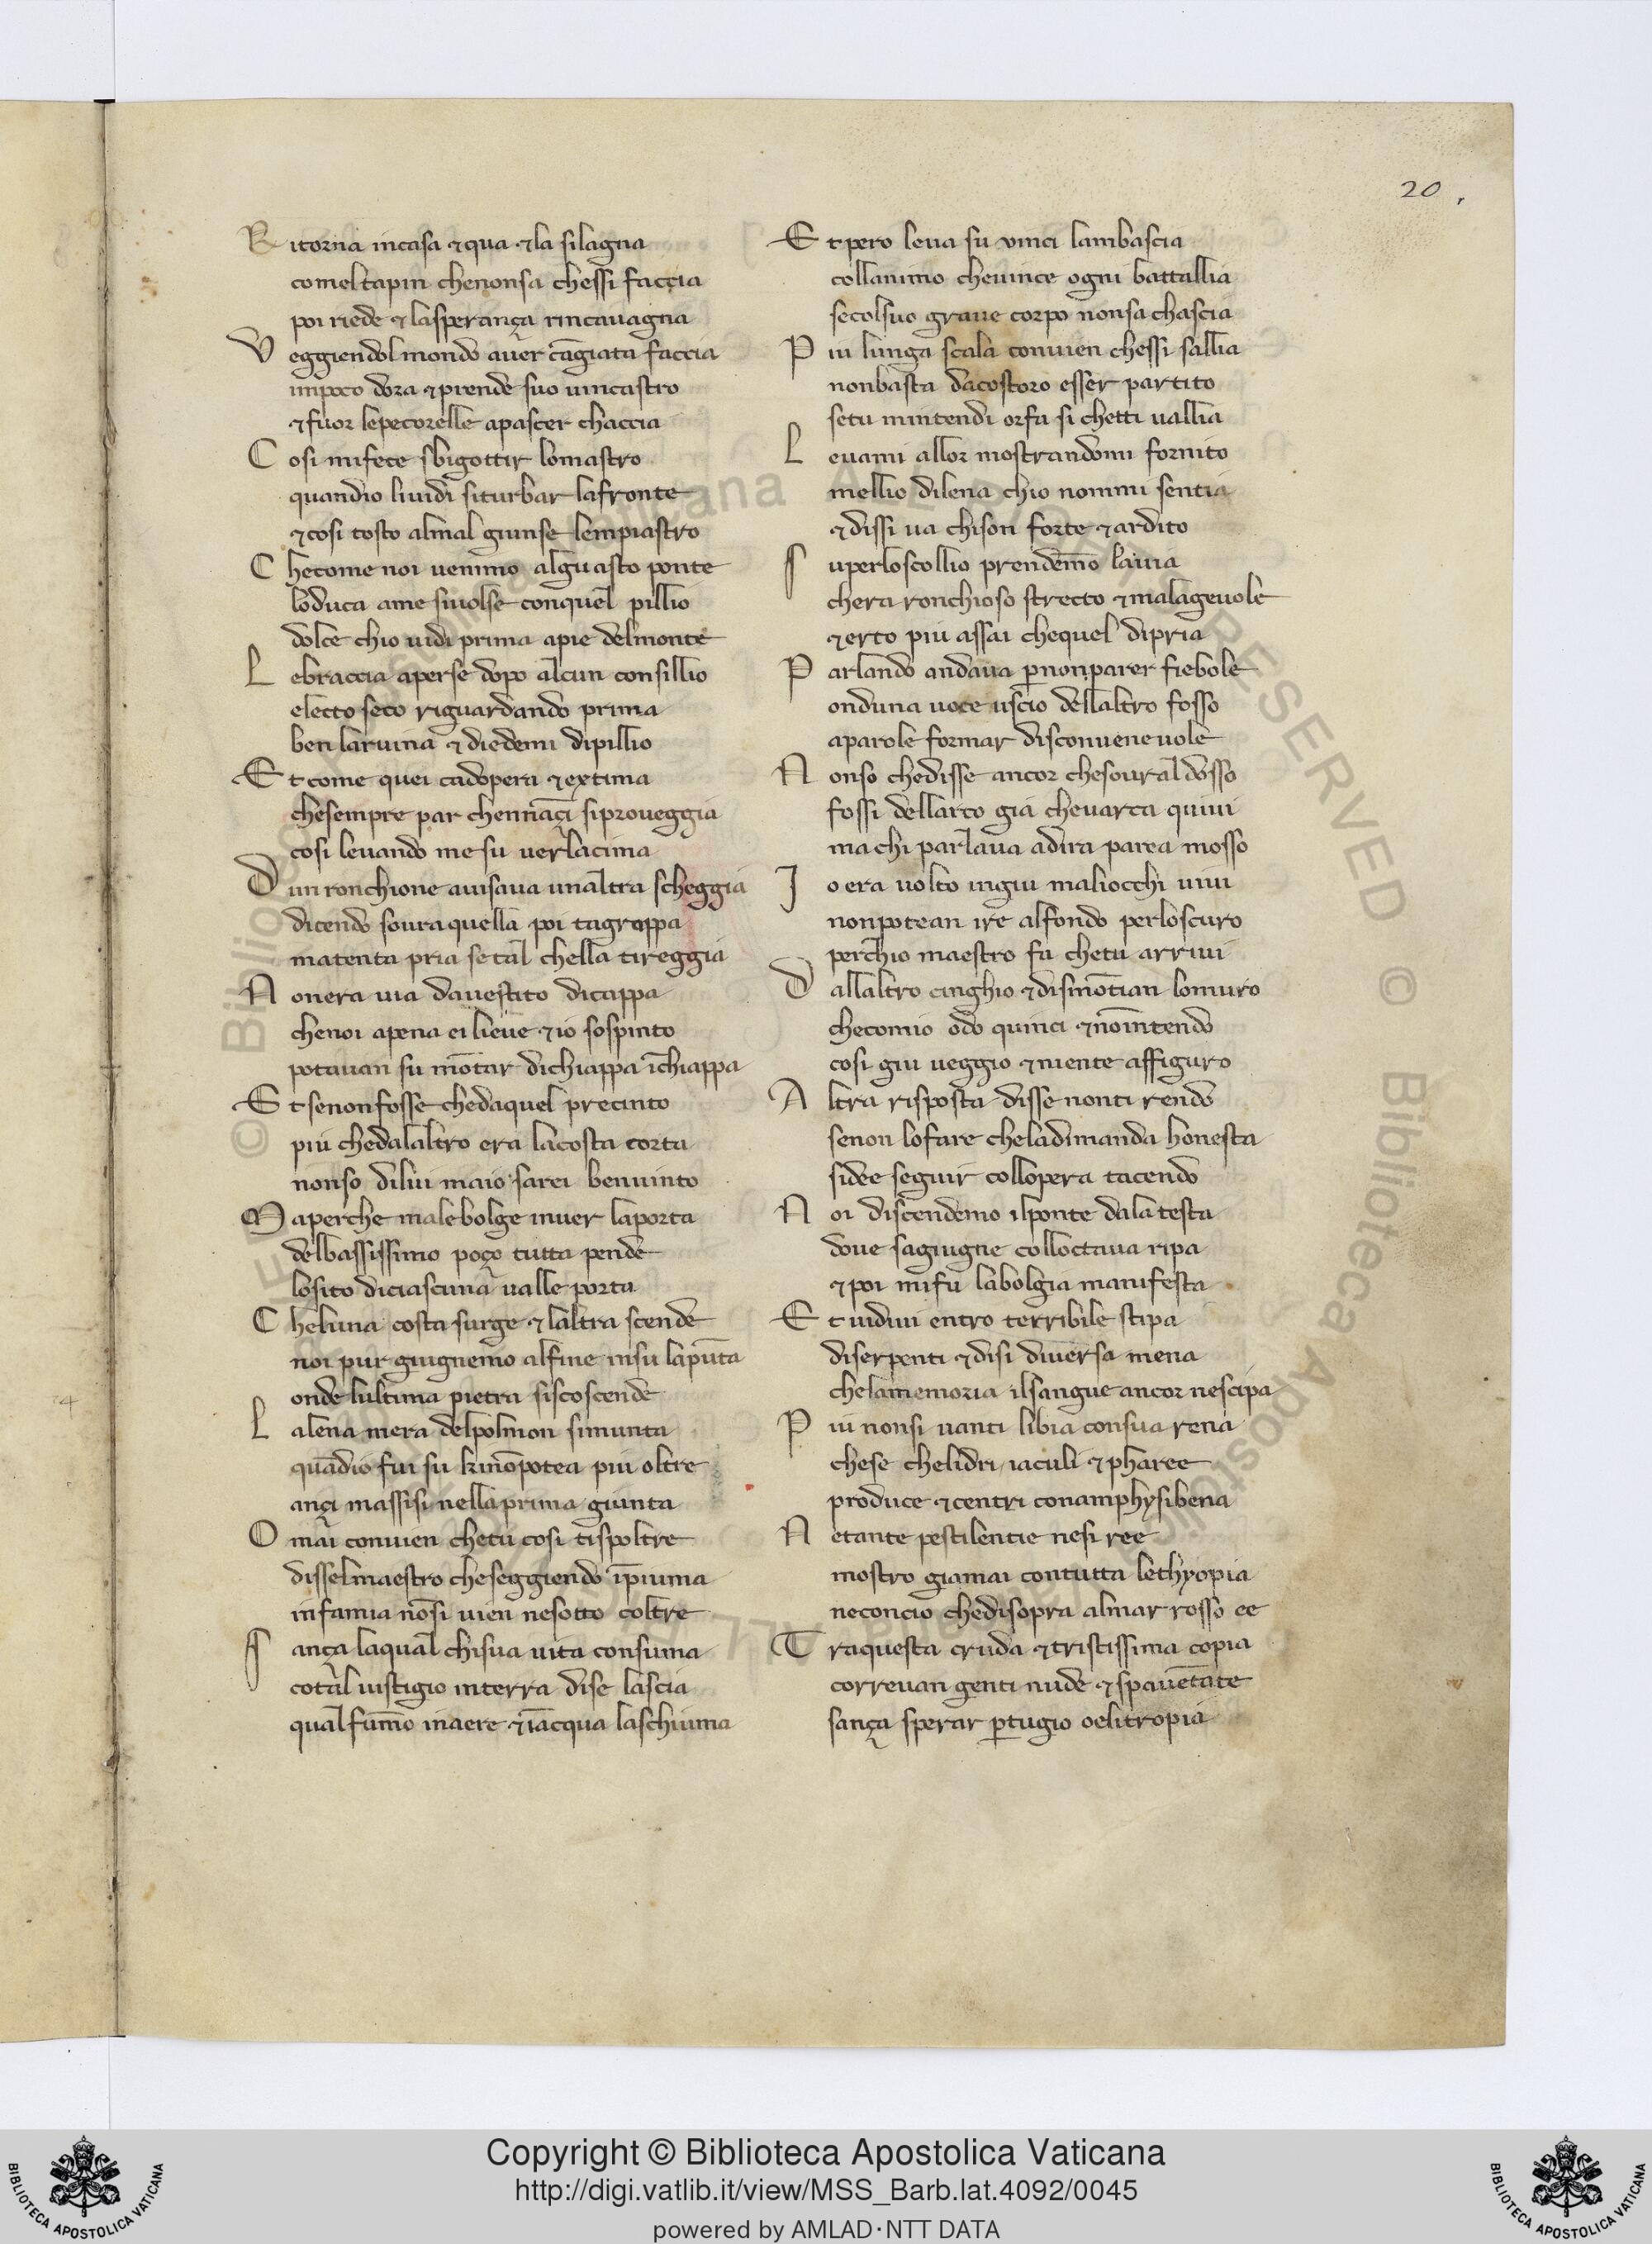 20
R itorna incasa ⁊ qua ⁊ la silagna
comeltapin chenonsa chessi faccia
poi riede ⁊ lasperança rincauagna
V eggiendol mondo auer cāgiata faccia
impoco dora ⁊ prende suo uincastro
⁊ fuor lepecorelle apascer chaccia
C osi mifece sbigottir lomastro
quandio liuidi siturbar lafronte
⁊ cosi tosto almal giunse lempiastro
C hecome noi uenimo alguasto ponte
loduca ame siuolse conquel pillio
dolce chio uidi prima apie delmonte
L ebraccia aperse dopo alcun consillio
electo seco riguardando prima
ben laruina ⁊ diedemi dipillio
E t come quei cadopera ⁊ extima
chesempre par chennāçi siproueggia
cosi leuando me su uerlacima
D un ronchione auisaua unaltra scheggia
dicendo souraquella poi tagrappa
matenta pria se tal chella tireggia
N onera uia dauestito dicappa
chenoi apena ei lieue ⁊ io sospinto
potauan su mōtar dichiappa īchiappa
E t senonfosse chedaquel precinto
piu chedalaltro era lacosta corta
nonso dilui maio sarei benuinto
M aperche malebolge inuer laporta
delbassissimo poço tutta pende
losito diciascuna ualle porta
C heluna costa surge ⁊ laltra scende
noi pur giugnemo alfine insu lapūta
onde lultima pietra siscoscende
L alena mera delpolmon simunta
quādio fui su kinōpotea piu oltre
ançi massisi nellaprima giunta
O mai conuien chetu cosi tispoltre
disselmaestro cheseggiendo īpiuma
infamia nōsi uien nesotto coltre
S ança laqual chisua uita consuma
cotal uistigio interra dise lascia
qualfummo inaere ⁊ īacqua laschiuma
E t pero leua su vinci lambascia
collanimo cheuince ogni battallia
secolsuo graue corpo nonsachascia
P iu lunga scala conuien chessi sallia
nonbasta dacostoro esser partito
setu mintendi orfa si chetti uallia
L euami allor mostrandomi fornito
mellio dilena chio nommi sentia
⁊ dissi ua chison forte ⁊ ardito
S uperloscollio prendemmo lauia
chera ronchioso strecto ⁊ malageuole
⁊ erto piu assai chequel dipria
P arlando andaua pnonparer fiebole
onduna uoce uscio dellaltro fosso
aparole formar disconueneuole
N onso chedisse ancor chesoural dosso
fossi dellarco gia cheuarca quiui
ma chi parlaua adira parea mosso
I o era uolto ingiu maliocchi uiui
nonpotean ire alfondo perloscuro
perchio maestro fa chetu arriui
D allaltro cinghio ⁊ dismōtian lomuro
checomio odo quinci ⁊ nōintendo
cosi giu ueggio ⁊ niente affiguro
A ltra risposta disse nonti rendo
senon lofare cheladimanda honesta
sidee seguir collopera tacendo
N oi discendemo ilponte dala testa
doue sagiugne colloctaua ripa
⁊ poi mifu labolgia manifesta
E t uidiui entro terribile stipa
diserpenti ⁊ disi diuersa mena
chelamemoria ilsangue ancor nescipa
P iu nonsi uanti libia consua rena
chese chelidri iaculi ⁊ pharee
produce ⁊ centri conamphysibena
N etante pestilentie nesi ree
mostro giamai contutta lethyopia
neconcio chedisopra almar rosso ee
T raquesta cruda ⁊ tristissima copia
correuan genti nude ⁊ spauētate
sança sperar ptugio oelitropia
© Biblioteca Apostolica Vaticana ALL RIGHTS RESERVED © Biblioteca Apostolica Vaticana ALL RIGHTS RESERVED
Copyright © Biblioteca Apostolica Vaticana
http://digi.vatlib.it/view/MSS_Barb.lat.4092/0045
powered by AMLAD·NTT DATA
BIBLIOTECA APOSTOLICA VATICANA
BIBLIOTECA APOSTOLICA VATICANA